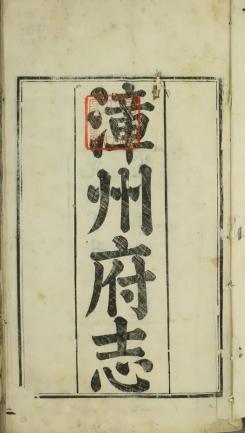 漳州府志